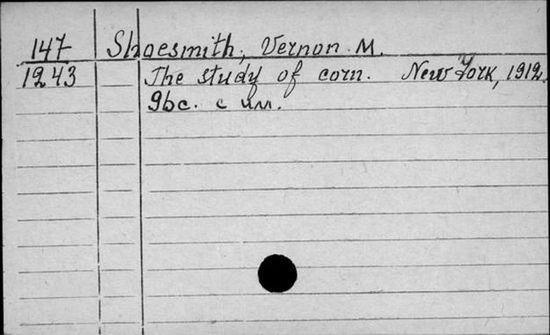 147 Shoesmith, Vernon M.
1243 The study of corn. New York, 1912.
96c. с ил.